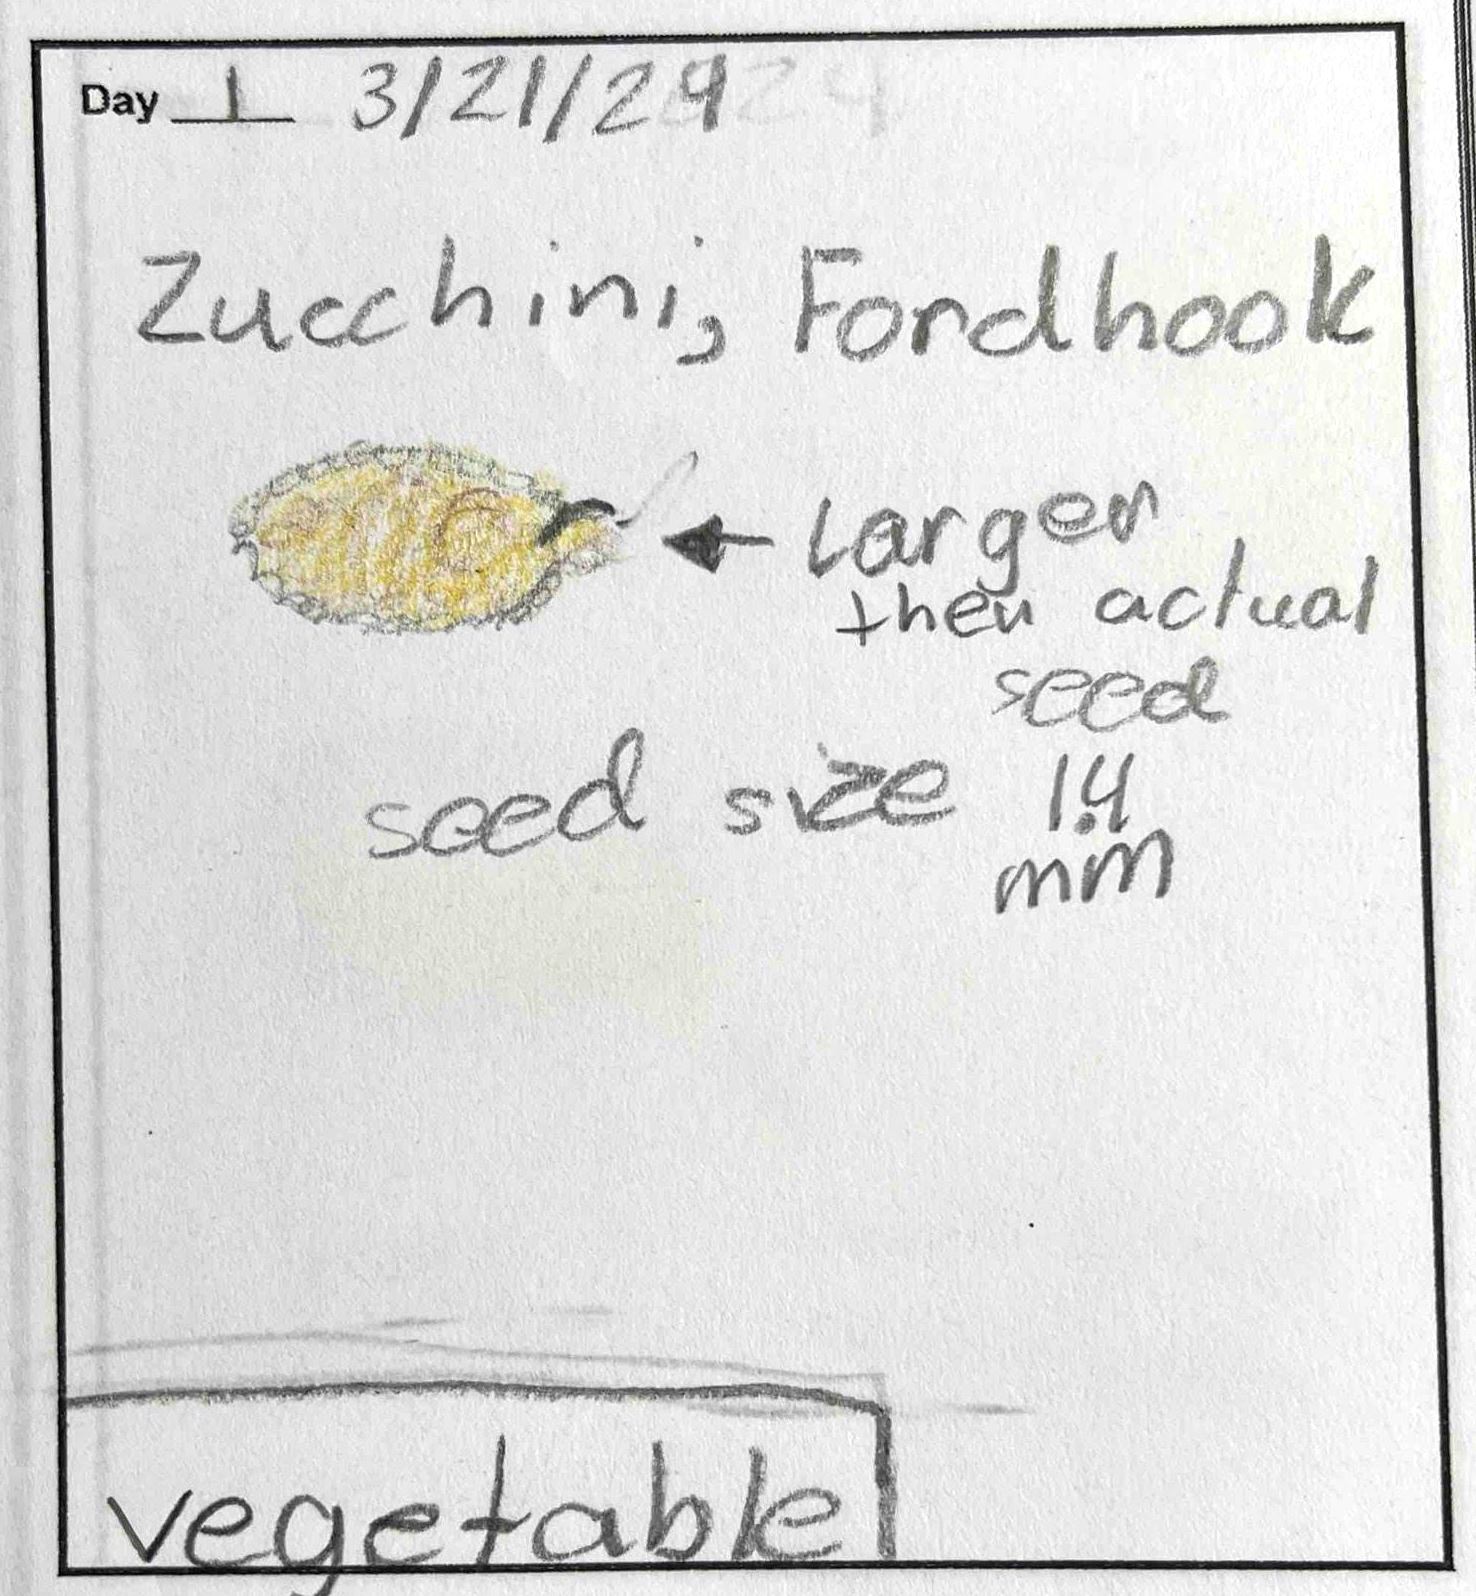 Day 1 3/21/24
Zucchini, Fordhook
Larger
then actual
seed
seed size 1.4
mm
vegetable